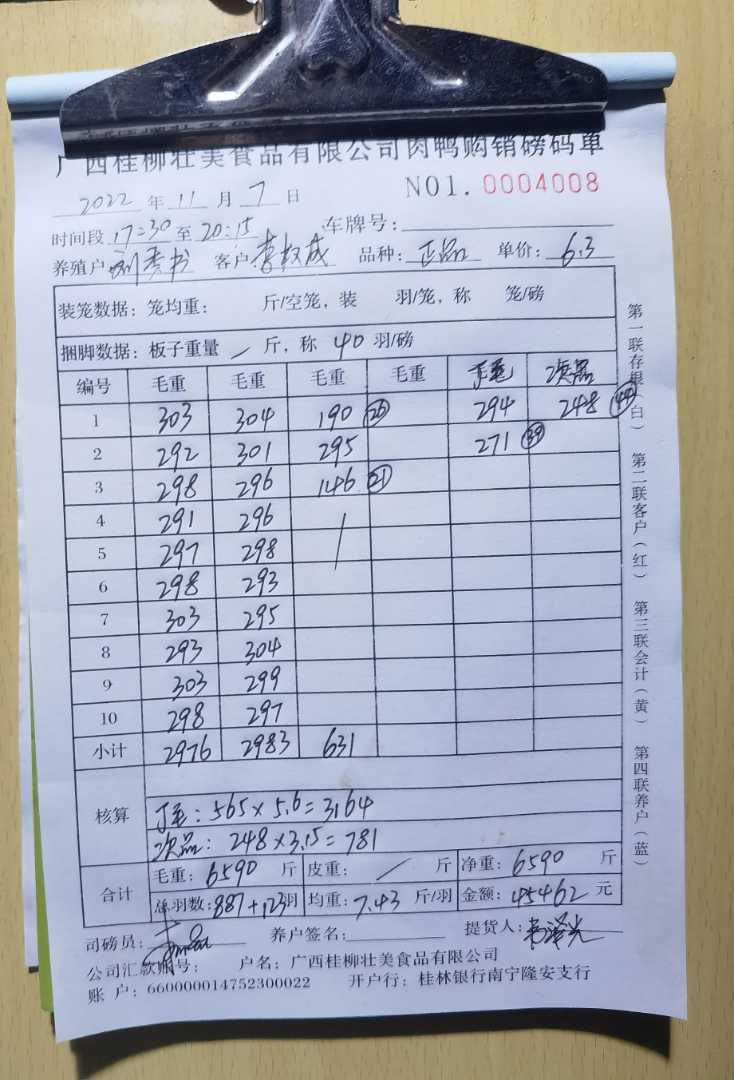 广西桂柳壮美食品有限公司肉鸭购销磅码单
2022 年 11 月 7 日 NO1. 0004008
时间段 17:30 至 20:15 车牌号:
养殖户: 客户: 品种: 正品 单价: 6.3
装笼数据: 笼均重: 斤/空笼, 装 羽/笼, 称 笼/磅
捆脚数据: 板子重量 / 斤, 称 40 羽/磅
编号 毛重 毛重 毛重 毛重 毛 次品
1 303 304 190 (26) 294 248 (44)
2 292 301 295 271 (39)
3 298 296 146 (21)
4 291 296
5 297 298
6 298 293
7 303 295
8 293 304
9 303 299
10 298 297
小计 2976 2983 631
核算
毛: 565×5.6=3,164
次品: 248×3.15=781
合计 毛重: 6590 斤 皮重: / 斤 净重: 6590 斤
总羽数: 887+123羽 均重: 7.43 斤/羽 金额: 45462 元
司磅员: 养户签名: 提货人:
公司汇款账号: 户名: 广西桂柳壮美食品有限公司
账 户: 660000014752300022 开户行: 桂林银行南宁隆安支行
第一联存根(白) 第二联客户(红) 第三联会计(黄) 第四联养户(蓝)